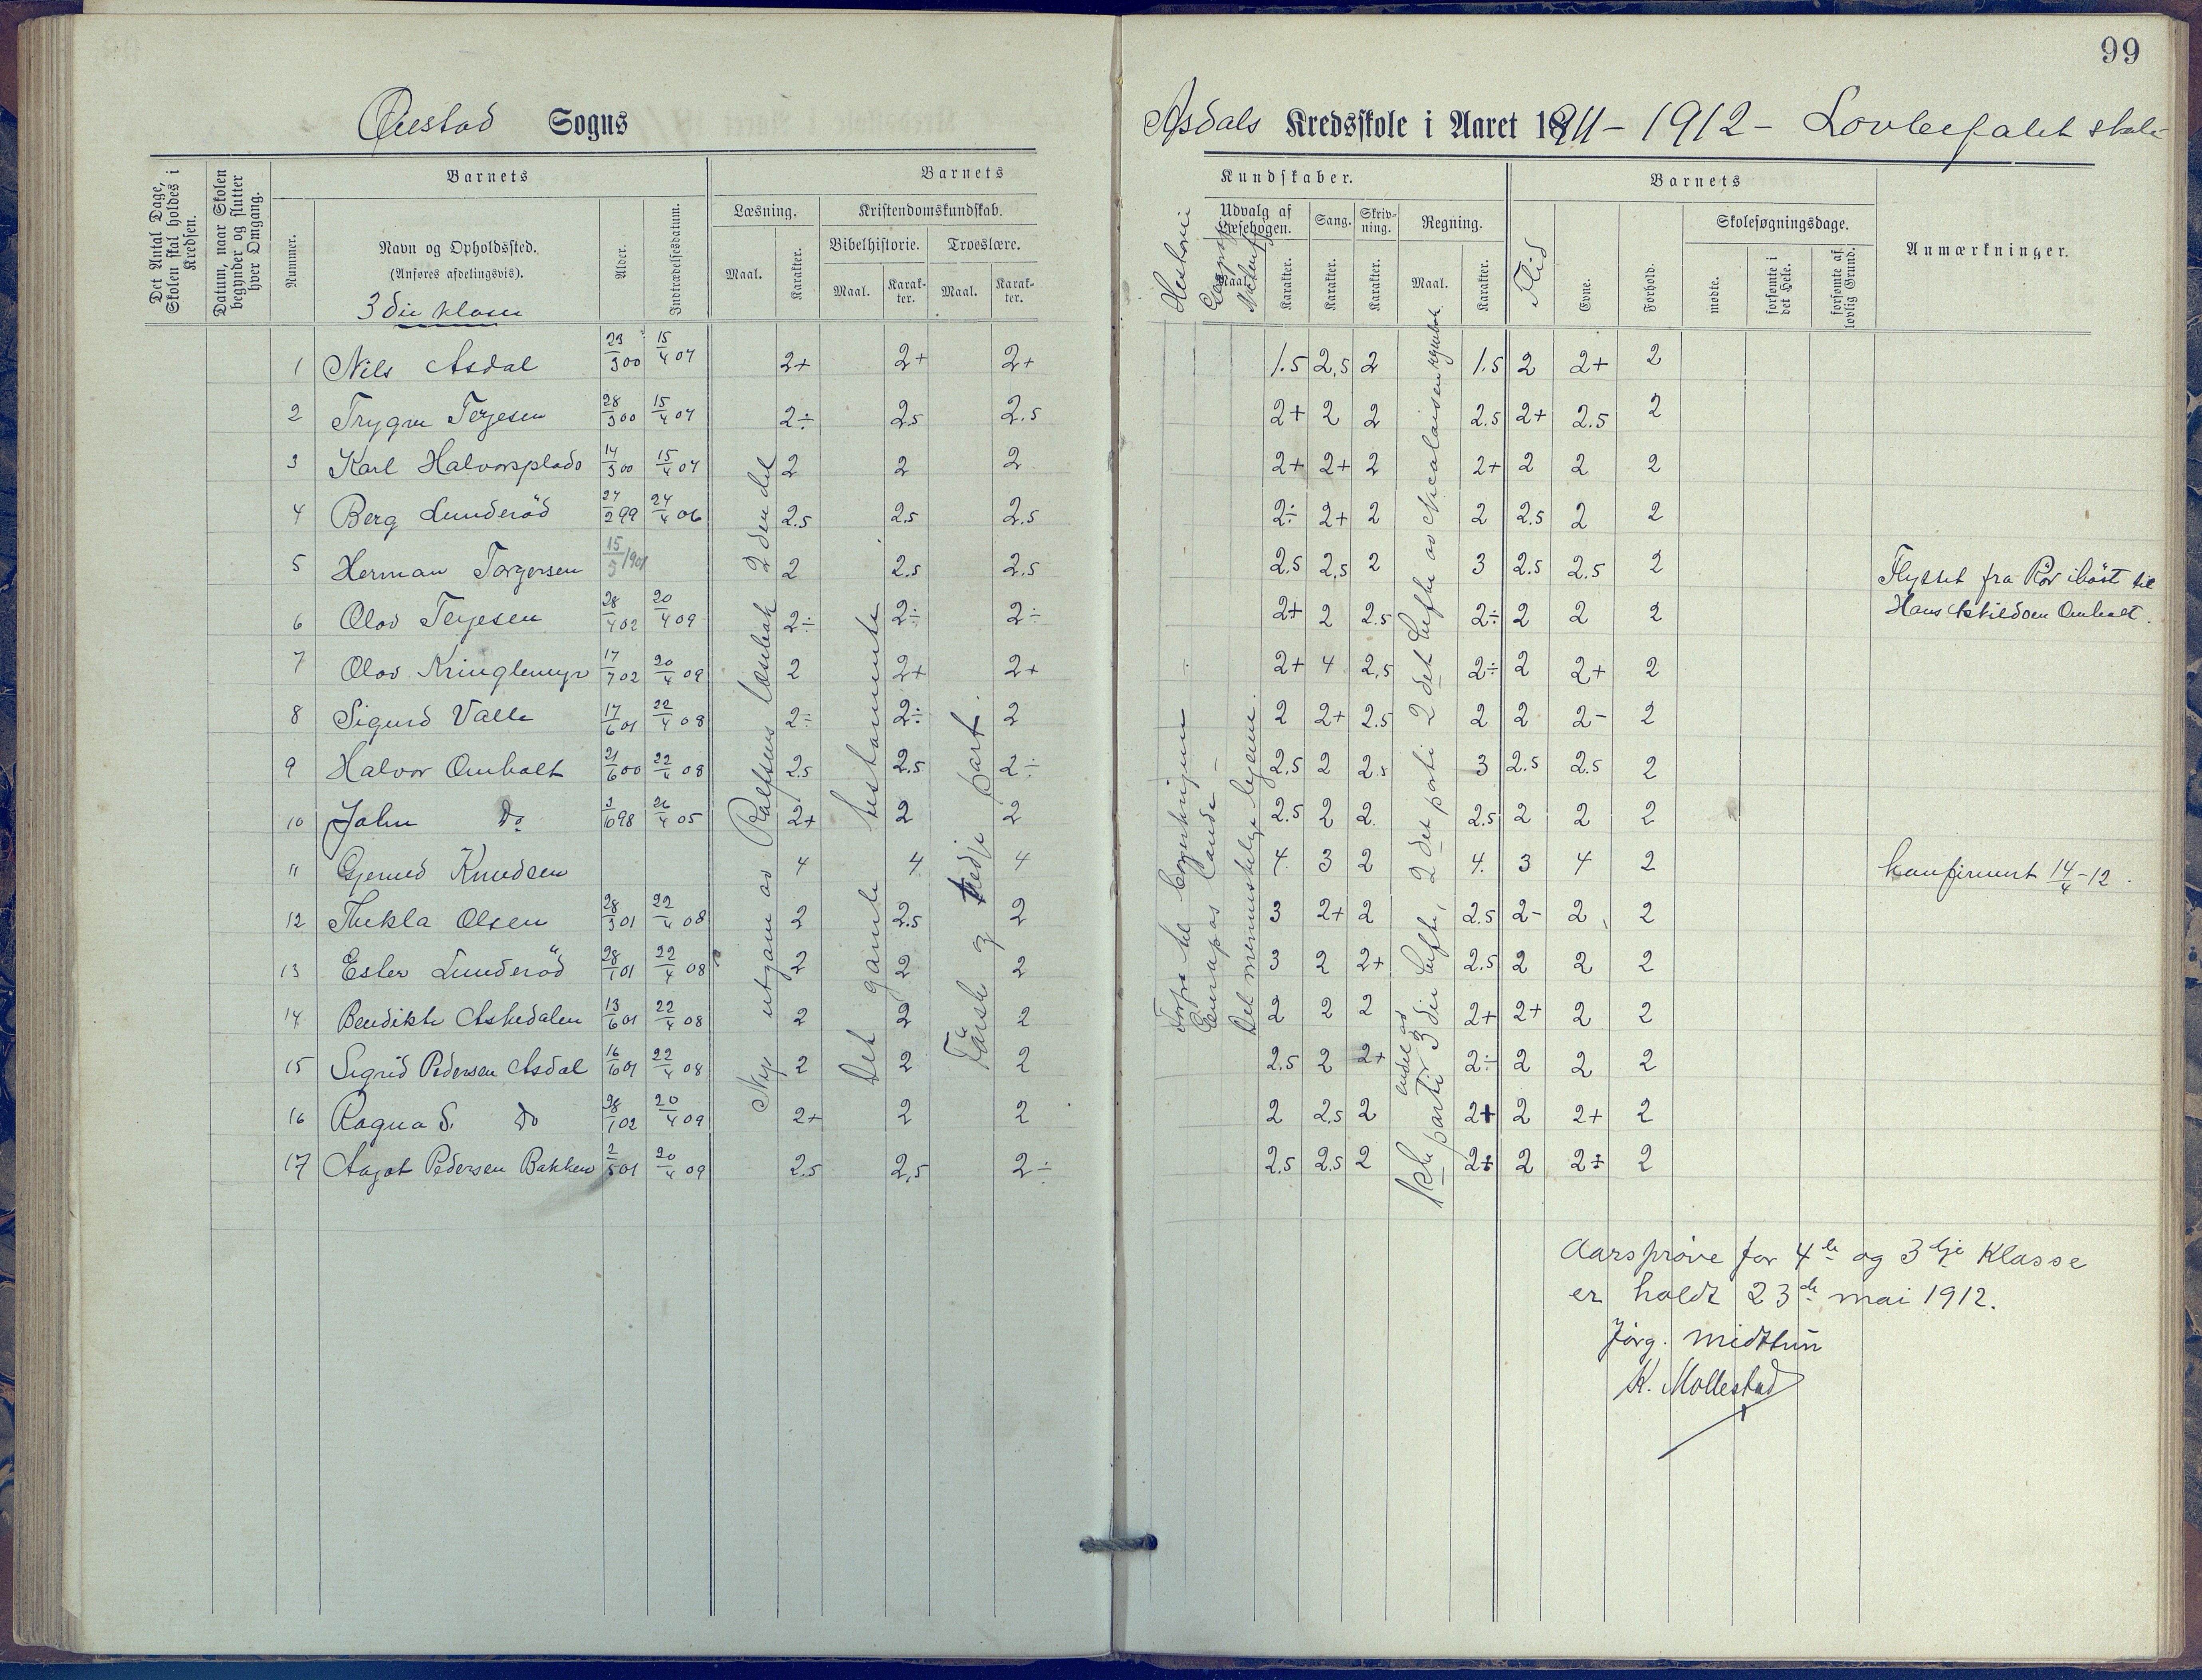 99
Øiestad Sogns
Asdals Kredsskole i Aaret 1911 - 1912 - Lovbefalet skole
Det Antal Dage, Skolen skal holdes i Kredsen.
Datum, naar Skolen begynder og slutter hver Omgang.
Barnets
Nummer.
Navn og Opholdssted.
(Anføres afdelingsvis).
3die klasse
Alder.
Indtrædelsesdatum.
Barnets
Læsning.
Maal.
Karakter.
Kristendomskundskab.
Bibelhistorie.
Maal.
Karakter.
Troeslære.
Maal.
Karakter.
Kundskaber.
Historie
Udvalg af Læsebogen.
Maal.
Karakter.
Sang.
Karakter.
Skrivning.
Karakter.
Regning.
Maal.
Karakter.
Barnets
Flid
Evne.
Forhold.
Skolesøgningsdage.
mødte.
forsømte i det Hele.
forsømte af lovlig Grund.
Anmærkninger.
1 Nils Asdal 23/3 00 15/4 07 2+ 2+ 2+ 1.5 2,5 2 1.5 2 2+ 2
2 Trygve Terjesen 28/3 00 15/4 07 2÷ 2.5 2.5 2+ 2 2 2.5 2+ 2.5 2
3 Karl Halvorsplads 14/3 00 15/4 07 2 2 2 2+ 2+ 2 2+ 2 2 2
4 Berg Lunderöd 27/2 99 24/4 06 2.5 2.5 2.5 2÷ 2+ 2 2 2.5 2 2
5 Herman Torgersen 15/5 1901 2 2.5 2.5 2.5 2,5 2 3 2.5 2.5 2 Flyttet fra til
6 Olav Terjesen 28/4 02 20/4 09 2÷ 2÷ 2÷ 2+ 2 2.5 2÷ 2 2 2 Hans Omholt.
7 Olav Kringlemyr 17/7 02 20/4 09 2 2+ 2+ 2+ 4 2,5 2÷ 2 2+ 2
8 Sigurd Valle 17/6 01 22/4 08 2÷ 2÷ 2 2 2+ 2.5 2 2 2- 2
9 Halvor Omholt 21/6 00 22/4 08 2.5 2.5 2÷ 2.5 2 2.5 3 2.5 2.5 2
10 John Do 3/10 98 26/4 05 2+ 2 2 2.5 2 2. 2.5 2 2 2
" Gjerued Knudsen 4 4 4 4. 3 2 4. 3 4 2 konfirmert 14/4-12.
12 Thekla Olsen 28/3 01 22/4 08 2 2.5 2 3 2+ 2 2.5 2- 2 2
13 Ester Lunderöd 28/1 01 22/4 08 2 2 2 3 2 2+ 2.5 2 2 2
14 Bendikte Askedalen 13/6 01 22/4 08 2 2 2 2 2 2 2+ 2+ 2 2
15 Sigrid Pedersen Asdal 16/6 01 22/4 08 2 2 2 2.5 2 2+ 2÷ 2 2 2
16 Ragna S. Do 28/1 02 20/4 09 2+ 2 2 2 2,5 2 2+ 2 2+ 2
17 Aagot Pedersen Bakken 2/5 01 20/4 09 2.5 2,5 2÷ 2.5 2.5 2 2+ 2 2+ 2
Ny utgave av Rolfsens læsebok 2den del
Det gamle testamente
Første og tredje part.
Europas lande -
Det menneskelige legeme.
1ste parti endel av 3die hefte, 2det parti 2det hefte av Nicolaisen regnebok
Aarsprøve for 4de og 3dje klasse
er holdt 23de mai 1912.
Jörg. Midttun
K. Mollestad